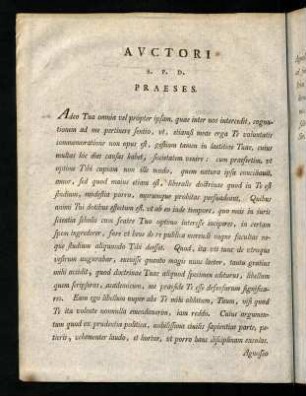 AVCTORI
S. P. D.
PRAESES.
Adeo Tua omnia vel propter ipsam, quae inter nos intercedit, cogna-
tionem ad me pertinere sentio, vt, etiamsi meae erga Te voluntatis
commemoratione non opus est, gestiam tamen in laetitiae Tuae, cuius
multas hic dies causas habet, societatem venire: cum praesertim, vt
optime Tibi cupiam non ille modo, quem natura ipsa conciliauit,
amor, sed quod maius etiam est, liberalis doctrinae quod in Te est
studium, modestia porro, morumque probitas persuadeant. Quibus
animi Tui dotibus effectum est, vt ab eo inde tempore, quo mea in iuris
scientia schola cum fratre Tuo optimo interesse inciperes, in certam
spem ingrederer, fore vt bene de re publica merendi neque facultas ne-
que studium aliquando Tibi deesset. Quod, ita vti tunc de vtroque
vestrum augurabar, successisse quanto magis nunc laetor, tanto gratius
mihi accidit, quod doctrinae Tuae aliquod specimen editurus, libellum
quem scripseras, academicum, me praeside Te esse defensurum significa-
res. Eum ego libellum nuper abs Te mihi oblatum, Tuum, nisi quod
Te ita volente nonnulla emendarem, iam reddo. Cuius argumen-
tum quod ex prudentia politica, nobilissima ciuilis sapientiae parte, pe-
tieris, vehementer laudo, et hortor, vt porro hanc disciplinam excolas.
Agnosces